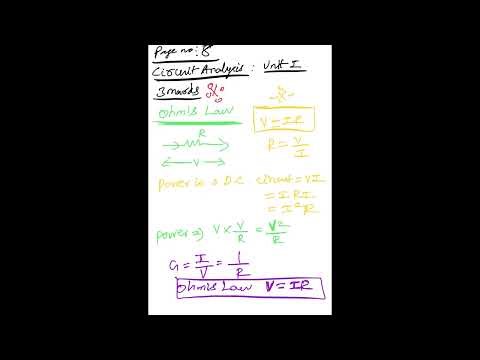 Page no: 8
Circuit Analysis: Unit I
3 marks
Ohm's Law
V = IR
R
V
R = V/I
Power in a DC circuit = VI
= I R I
= I²R
Power ⇒ V × V/R = V²/R
G = I/V = 1/R
Ohm's Law V = IR